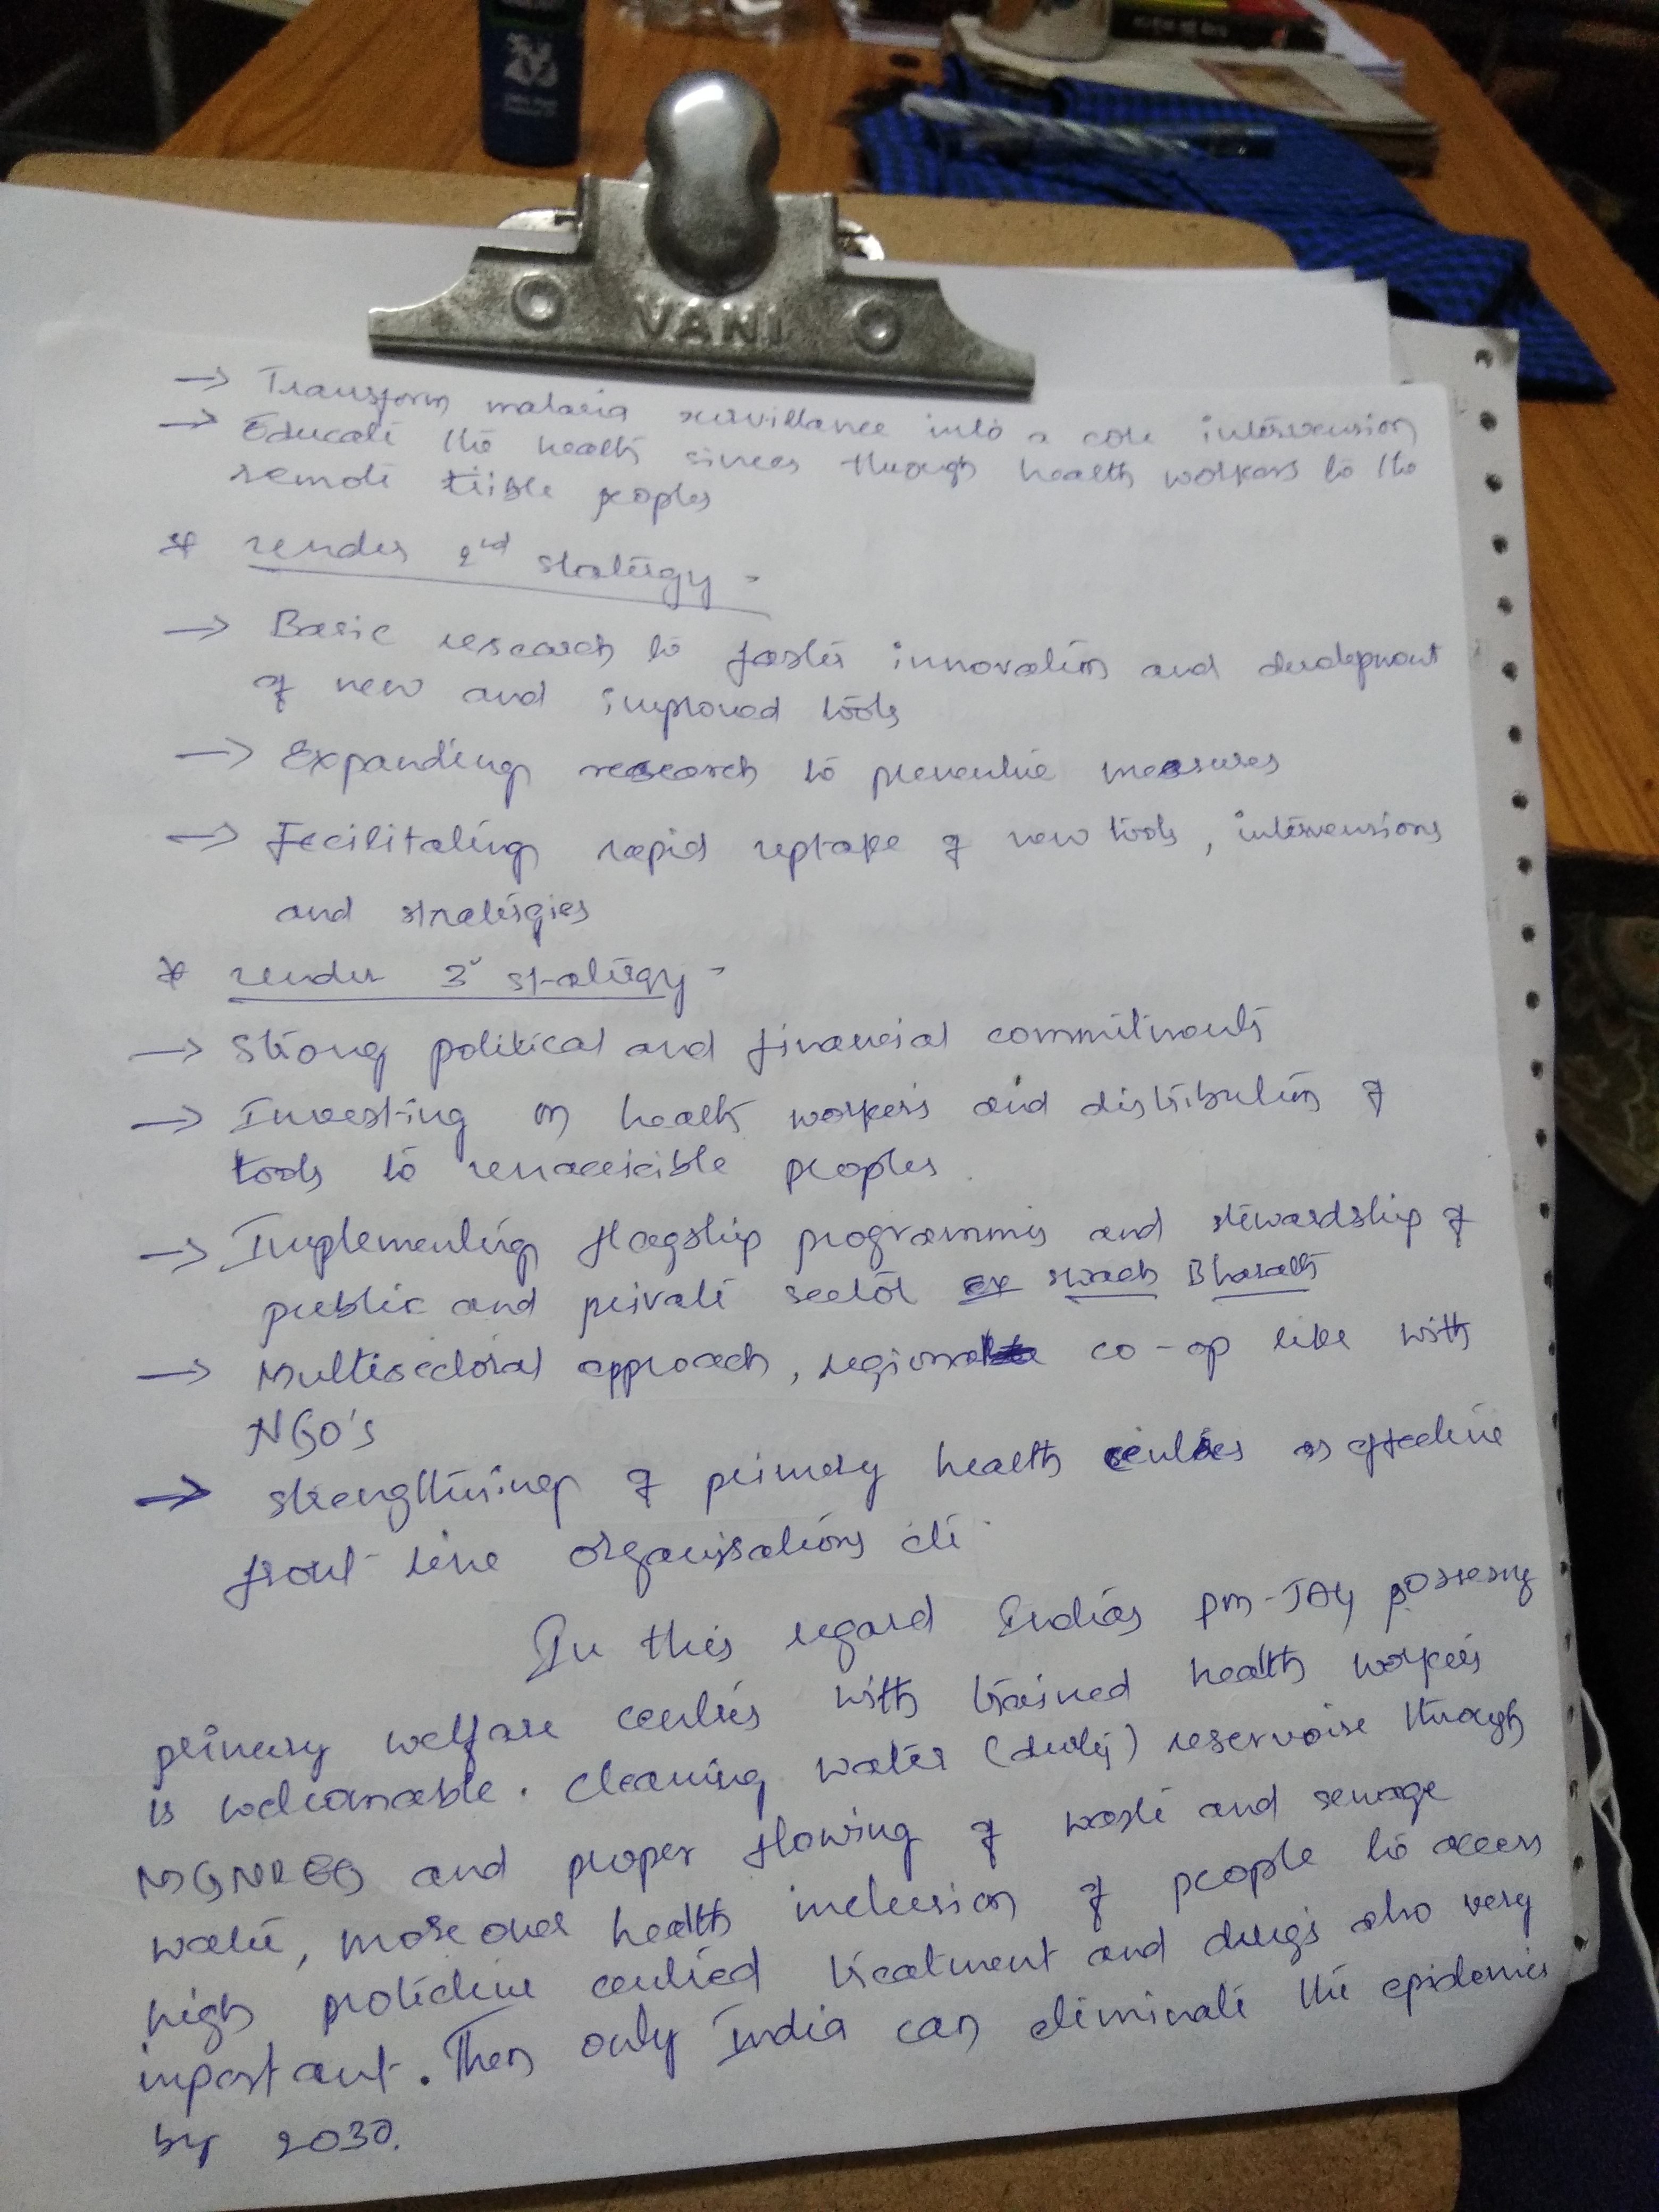 VANI
→ Transform malaria survillance into a core intervension
→ Educate the health through health workers to the
remote peoples
* under 2nd strategy -
→ Basic research to foster innovation and development
of new and improved tools
→ Expanding research to preventive measures
→ Fecilitating rapid uptake of new tools, intervensions
and strategies
* under 3rd strategy -
→ Strong political and financial commitments
→ Investing on health workers and distribution of
tools to unaccicible peoples
→ Implementing flagship programmes and stewardship of
public and private sector ex swach Bharath
→ Multisectoral approach, regional co-op like with
NGO's
→ strengthining of primary health centres as effective
front line organisations etc.
In this regard India's PM-JAY possessing
primary welfare centres with trained health workers
is welcomable. Cleaning water (dirty) reservoirs through
MGNREG and proper flowing of waste and sewage
water, moreover health inclusion of people to access
high treatment and drugs also very
important. Then only India can eliminate the epidemics
by 2030.